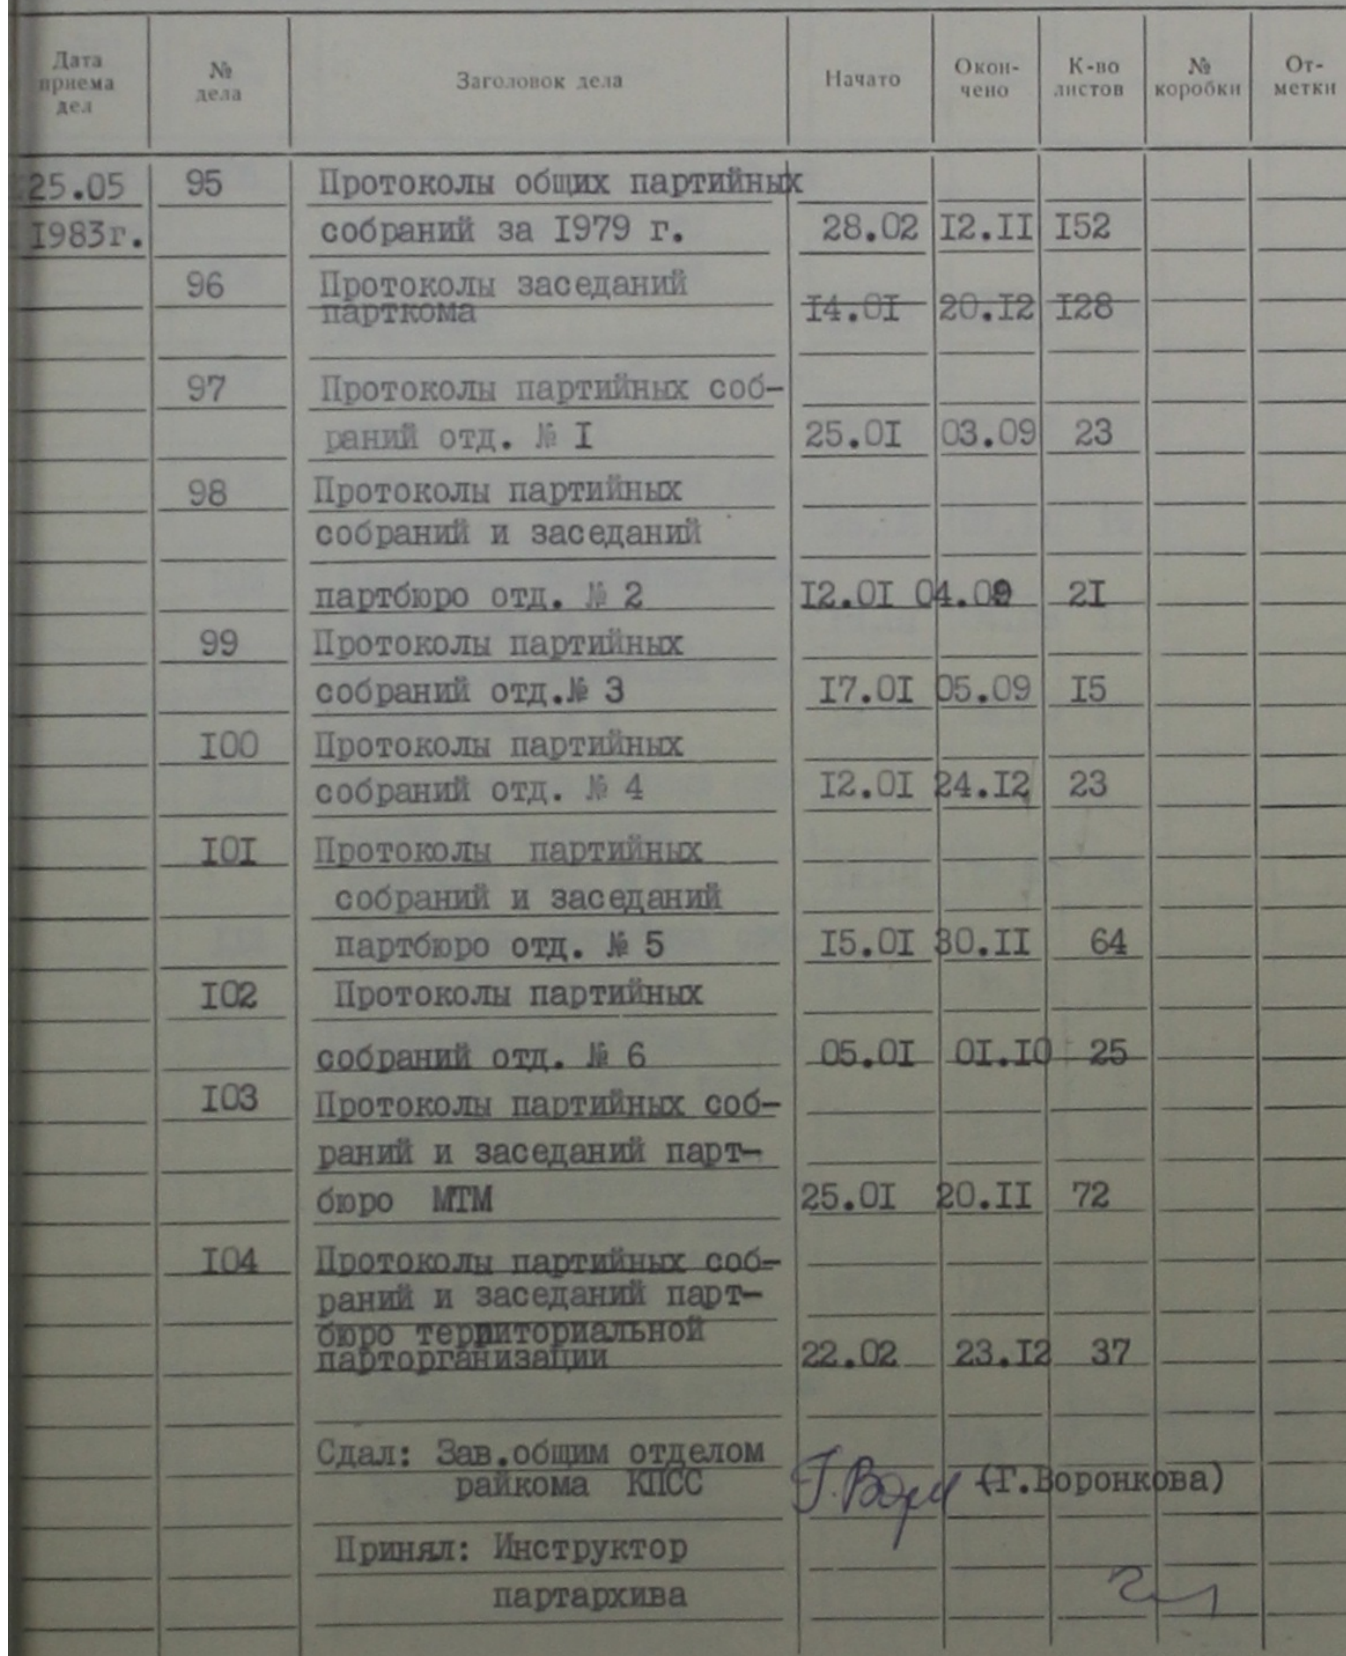 Дата приема дел № дела Заголовок дела Начато Окон- чено К-во листов № коробки От- метки
25.05 95 Протоколы общих партийных
I983г. собраний за I979 г. 28.02 I2.II I52
96 Протоколы заседаний
парткома I4.0I 20.I2 I28
97 Протоколы партийных соб-
раний отд. № I 25.0I 03.09 23
98 Протоколы партийных
собраний и заседаний
партбюро отд. № 2 I2.0I 04.09 2I
99 Протоколы партийных
собраний отд.№ 3 I7.0I 05.09 I5
I00 Протоколы партийных
собраний отд. № 4 I2.0I 24.I2 23
I0I Протоколы партийных
собраний и заседаний
партбюро отд. № 5 I5.0I 30.II 64
I02 Протоколы партийных
собраний отд. № 6 05.0I 0I.I0 25
I03 Протоколы партийных соб-
раний и заседаний парт-
бюро МТМ 25.0I 20.II 72
I04 Протоколы партийных соб-
раний и заседаний парт-
бюро территориальной
парторганизации 22.02 23.I2 37
Сдал: Зав.общим отделом
райкома КПСС (Г.Воронкова)
Принял: Инструктор
партархива